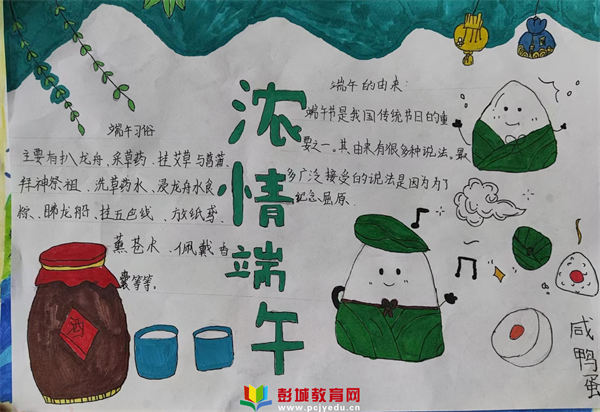 浓情端午
端午习俗
主要有扒龙舟、采草药、挂艾草与菖蒲、
拜神祭祖、洗草药水、浸龙舟水、食
粽、睇龙船、挂五色线、放纸鸢、
薰苍术、佩戴香
囊等等。
端午的由来:
端午节是我国传统节日的重
要之一。其由来有很多种说法。最
多广泛接受的说法是因为为了
纪念屈原.
酒
咸
鸭
蛋
彭城教育网
www.pcjyedu.cn